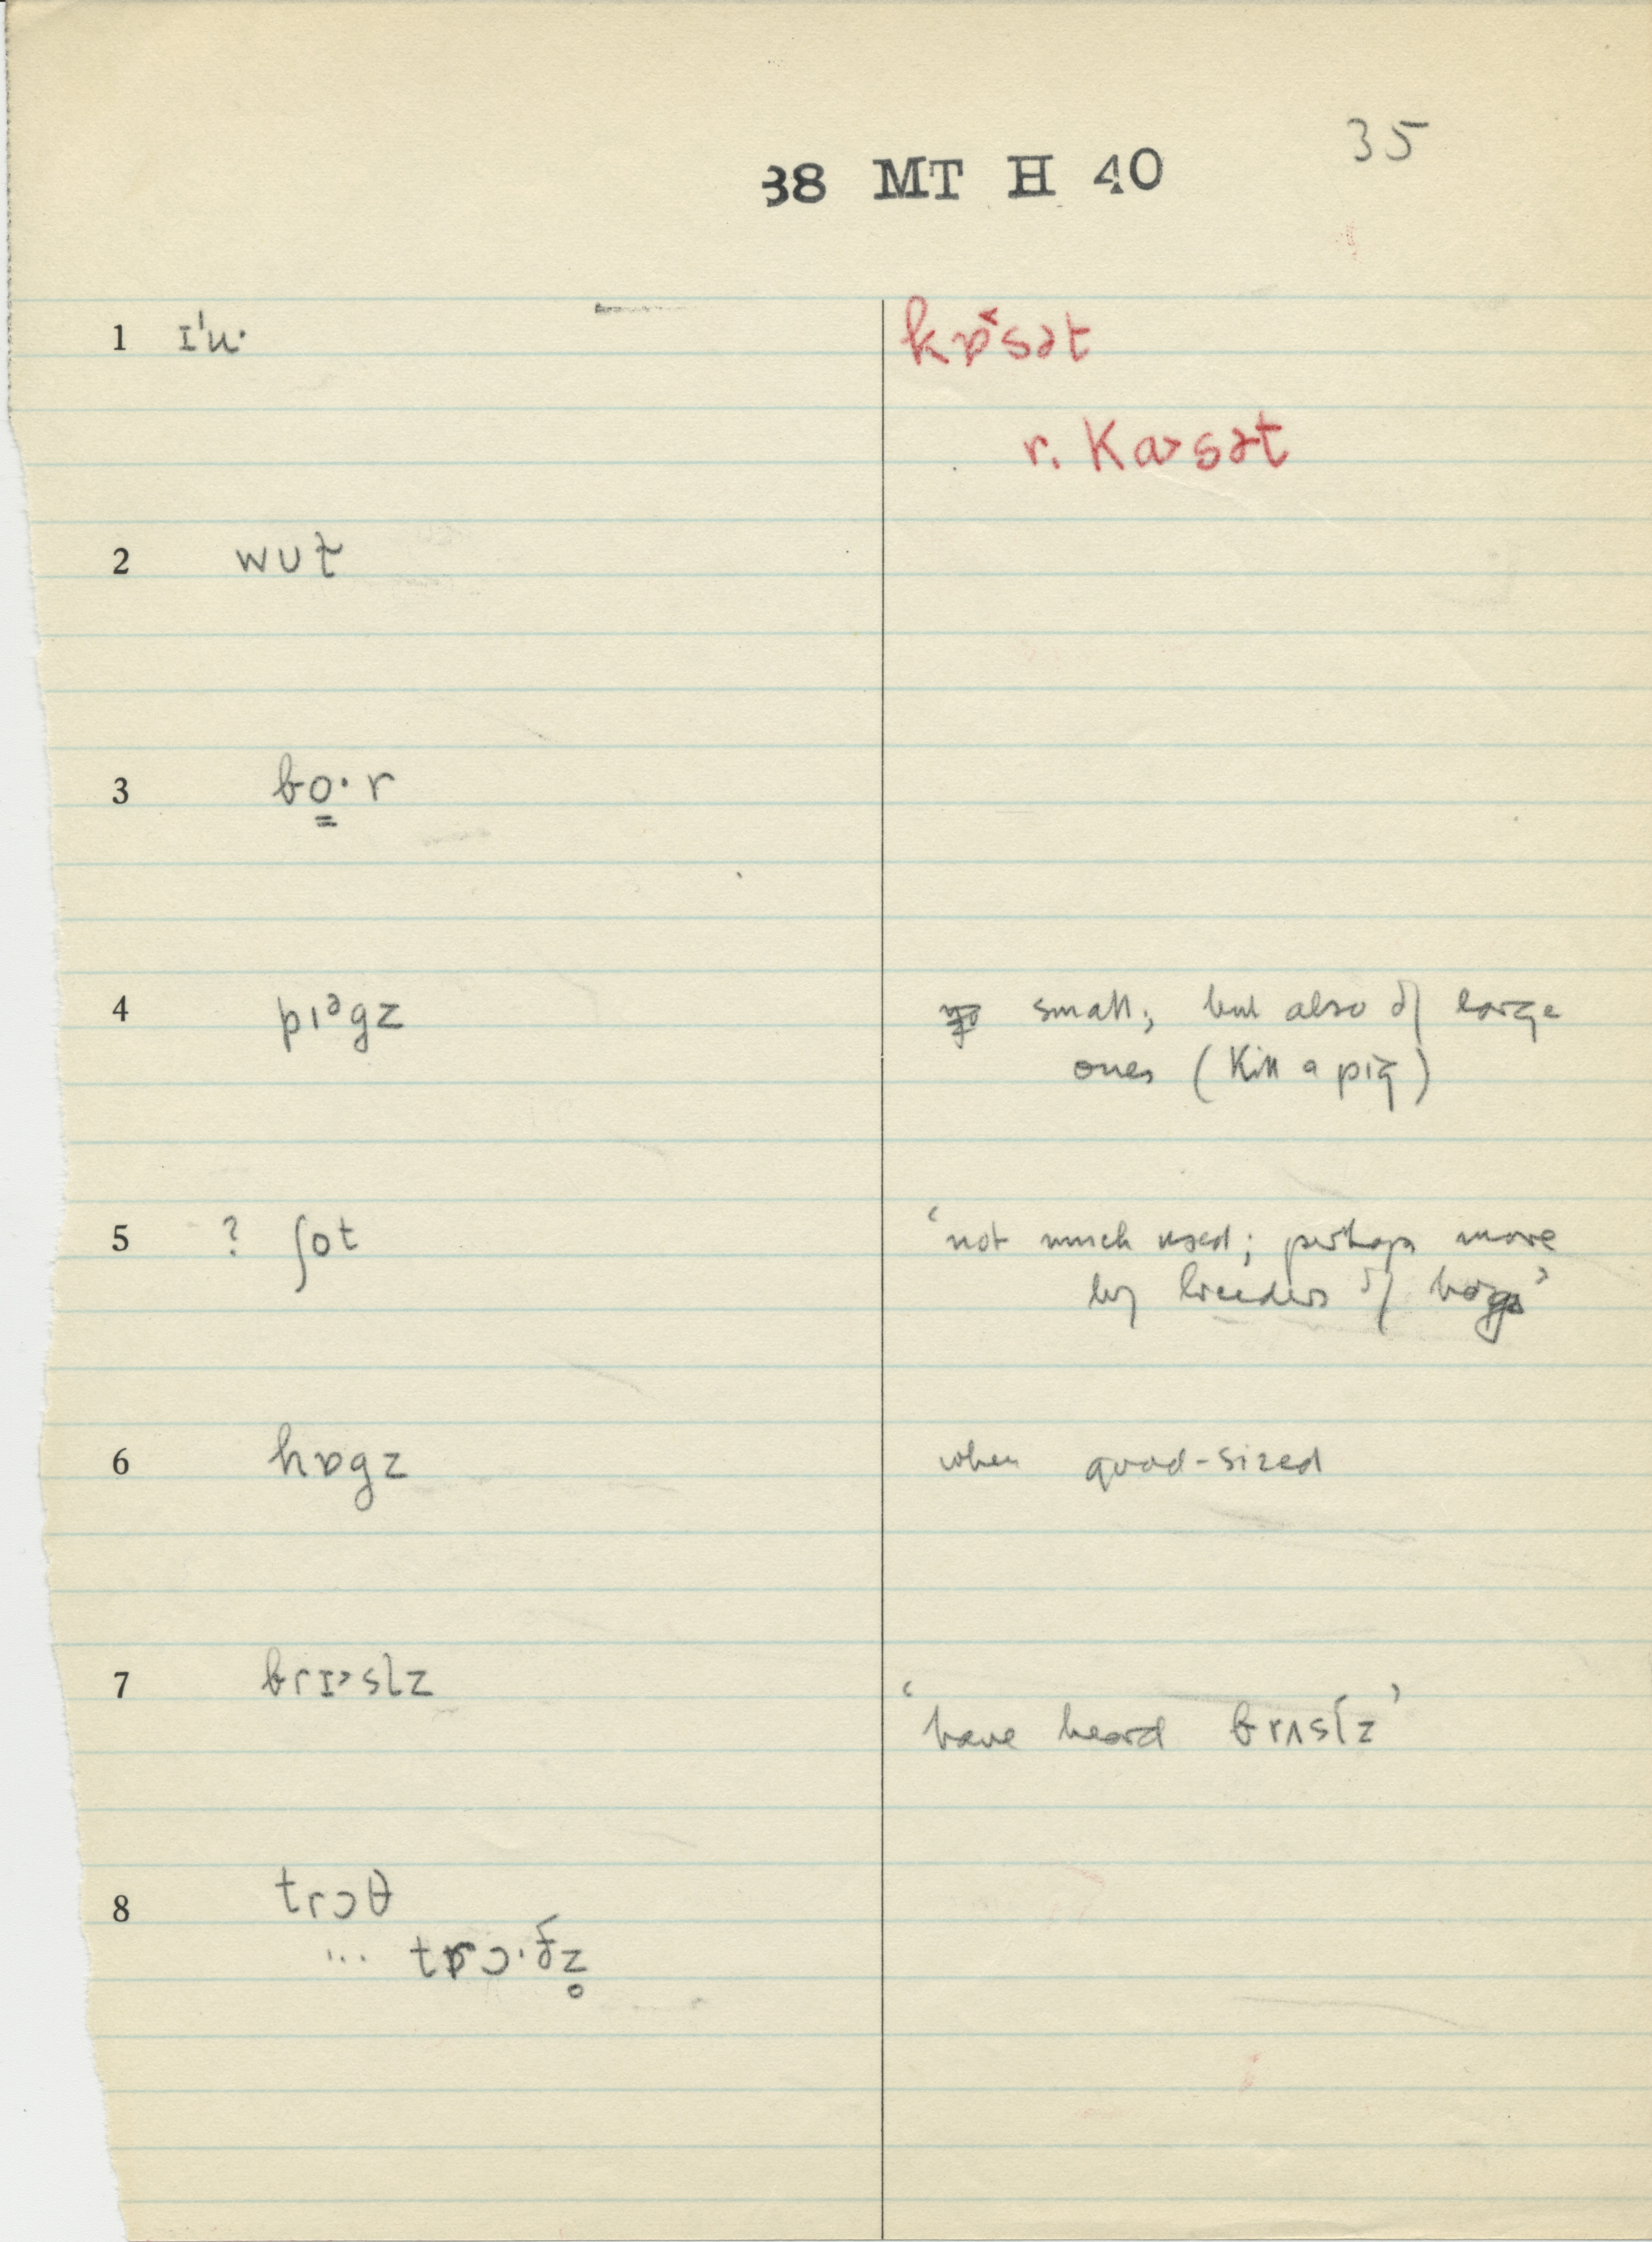 35
38 MT H 40
1 ɪ'u· kɒ˂sət
r. Ka˃sət
2 wut̬
3 bo̳·r
4 pɪᵊgz small; but also of large
ones (Kill a pig)
5 ? ʃɒt 'not much used; perhaps more
by breeders of hogs'
6 hɒgz when good-sized
7 brɪ˃slz 'have heard brʌslz'
8 trɔθ
... trɔ·ðz̥